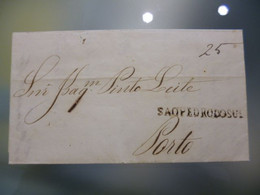 25
Pinto Leite
SAOPEDRODOSUL
Porto